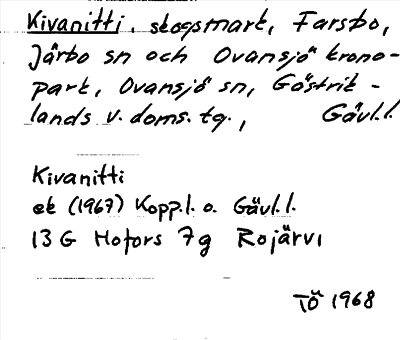 Kivanitti, skogsmark, Farsbo,
Järbo sn och Ovansjö krono-
park, Ovansjö sn, Gästrik-
lands v. doms. tg., Gävl.l.
Kivanitti
ek (1967) Kopp.l. o. Gävl.l.
13 G Hofors 7g Rojärvi
TÖ 1968